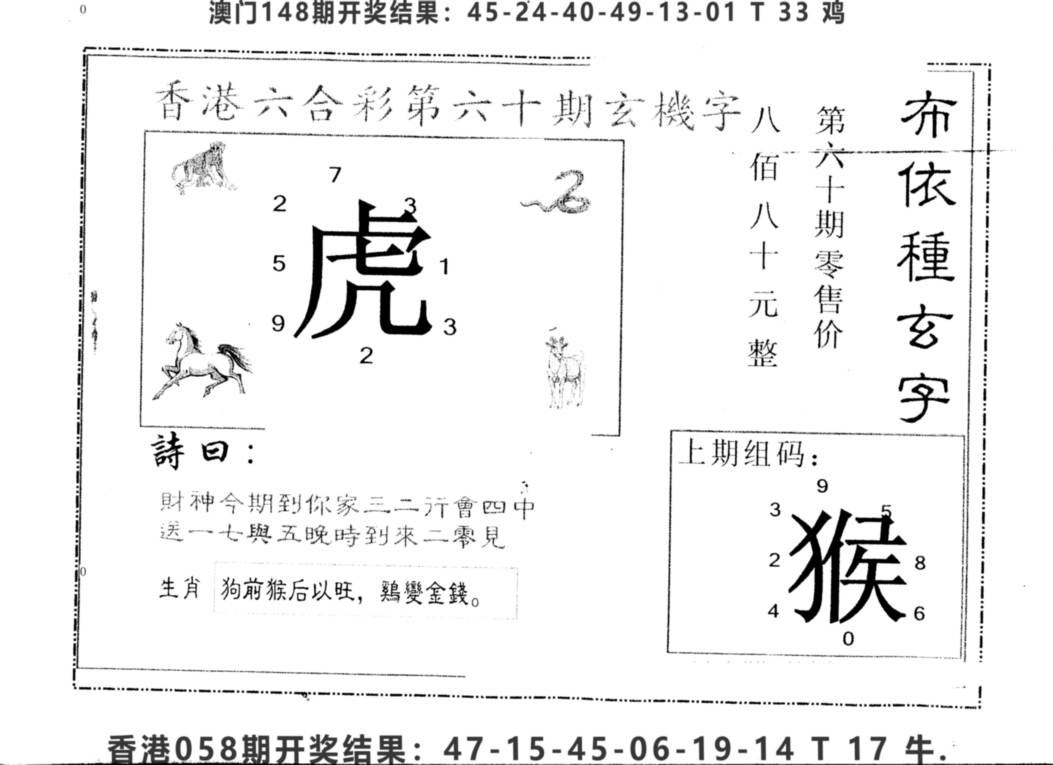 澳门148期开奖结果：45-24-40-49-13-01 T 33 鸡
香港六合彩第六十期玄機字
布依種玄字
第六十期零售价
八佰八十元整
7
2
3
虎
5
1
9
3
2
詩曰：
財神今期到你家三二行會四中
送一七與五晚時到來二零見
生肖 狗前猴后以旺，鷄變金錢。
上期组码：
9
3
5
猴
2
8
4
6
0
香港058期开奖结果：47-15-45-06-19-14 T 17 牛.
0
0